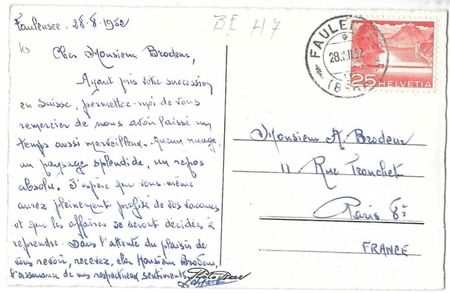 Faulensee 28-8-1952
BE H7
Cher Monsieur Brodeur,
Ayant pris votre succession
en Suisse, permettez-moi de vous
remercier de nous avoir laissé un
temps aussi merveilleux. Aucun nuage,
un paysage splendide, un repos
absolu. J'espère que vous-même
avez pleinement profité de vos vacances
et que les affaires se seront décidées à
reprendre. Dans l'attente du plaisir de
vous revoir, recevez, cher Monsieur Brodeur,
l'assurance de mes respectueux sentiments.
FAULEN
28.VIII.52
(BERN)
25 HELVETIA
Monsieur A. Brodeur
11 Rue Tronchet
Paris 8è
FRANCE